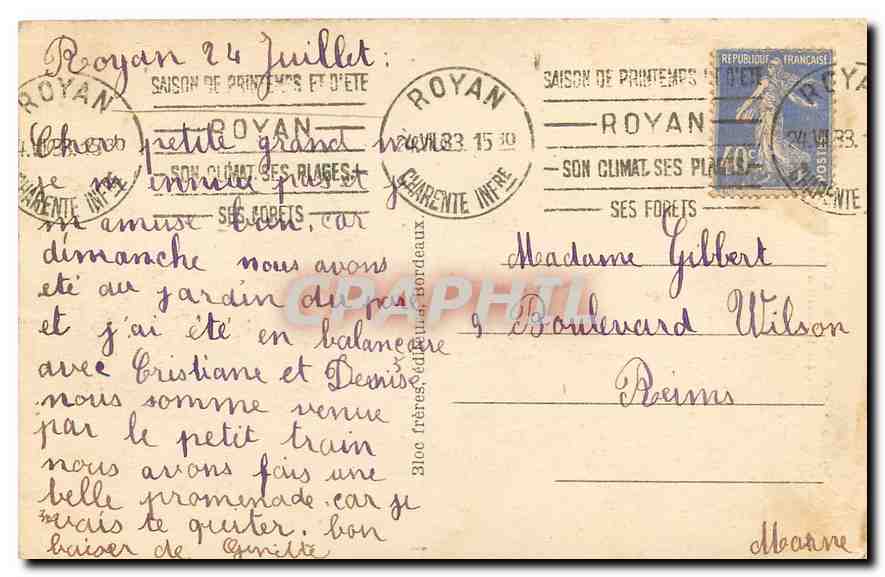 Royan 24 Juillet :
SAISON DE PRINTEMPS ET D'ETE
ROYAN
SON CLIMAT. SES PLAGES
SES FORETS
ROYAN
24 VII.33. 15 30
CHARENTE INFRE
SAISON DE PRINTEMPS ET D'ETE
ROYAN
SON CLIMAT. SES PLAGES
SES FORETS
ROYAN
CHARENTE INFRE
ROYAN
24 VII 33.
CHARENTE INFRE
REPUBLIQUE FRANÇAISE
40c
POSTES
Cher petite grand mère
je m ennuie pas et je
m amuse bien, car
dimanche nous avons
eté au jardin du parc
et j'ai été en balançoire
avec Cristiane et Denise
nous somme venue
par le petit train
nous avons fais une
belle promenade. car je
vais te quiter. bon
baiser de Ginette
Bloc frères, éditeurs, Bordeaux
CPARPHIL
Madame Gilbert
9 Boulevard Wilson
Reims
Marne